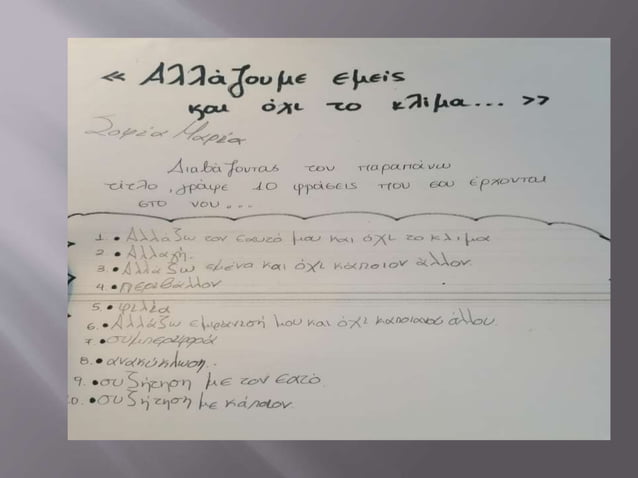 « Αλλάζουμε εμείς
και όχι το κλίμα... »
Σοφία Μαρία
Διαβάζοντας τον παραπάνω
τίτλο, γράψε 10 φράσεις που σου έρχονται
στο νου...
1. • Αλλάζω τον εαυτό μου και όχι το κλίμα
2. • Αλλαγή.
3. • Αλλάζω εμένα και όχι κάποιον άλλον.
4. • περιβάλλον
5. • φιλία
6. • Αλλάζω εμφάνιση μου και όχι άλλου.
7. • συμπεριφορά
8. • ανακύκλωση.
9. • συζήτηση με τον εατό.
10. • συζήτηση με κάποιον.